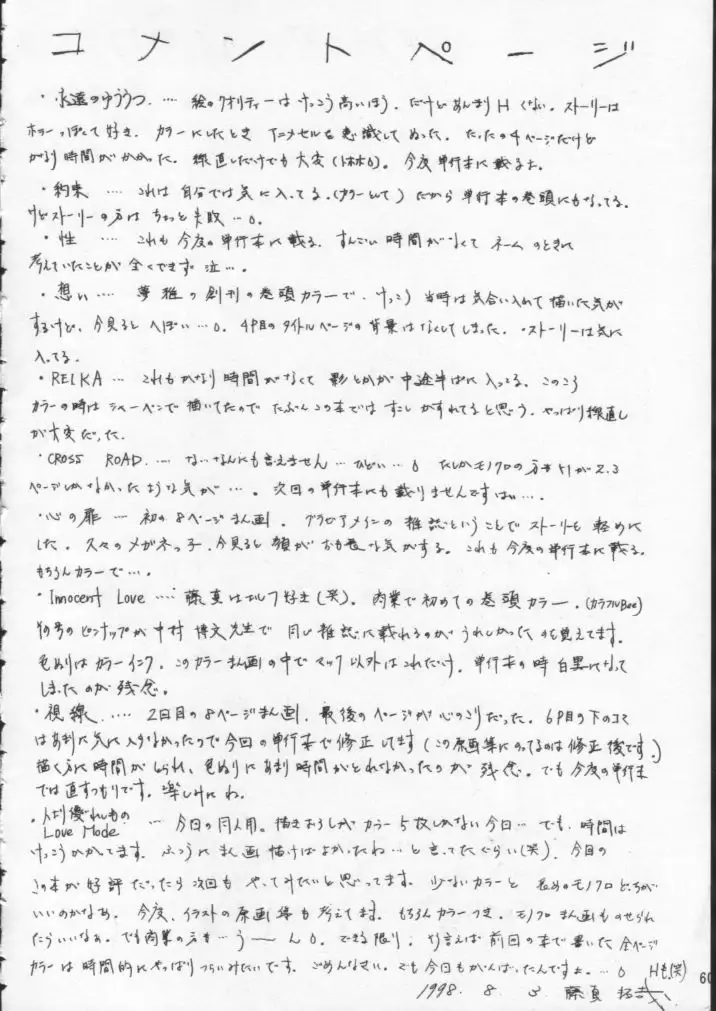 コメントページ
・永遠のゆううつ.…. 絵のクオリティーはけっこう高いほう. だけどあんまりHくない. ストーリーは
ホラーっぽくて好き. カラーにしたとき アニメセルを意識してぬった. たったの4ページだけど
かなり時間がかかった. 線直しだけでも大変(1本木). 今度単行本に載るよ.
・約束 …. これは 自分では気に入ってる.(カラーとして) だから 単行本の巻頭にもなってる.
けどストーリーの方は ちょっと失敗 ….
・性 …. これも今度の単行本に載る. すんごい時間がなくて ネームのときに
考えていたことが 全くできず 泣….
・想い…. 夢雅の創刊の巻頭カラーで. けっこう 当時は気合い入れて描いた気が
するけど. 今見ると へぼい…. 4P目のタイトルページの背景はなくしてしまった. ・ストーリーは気に
入ってる.
・REIKA … これもかなり時間がなくて 影とかが中途半ぱに入ってる. このころ
カラーの時は シャーペンで描いてたので たぶんこの本では すこしかすれてると思う. やっぱり線直し
が大変だった.
・CROSS ROAD.… な…なんにも言えません … ひどい… たしかモノクロの方も が2.3
ページしかなかったような気が …. 次回の単行本にも載りませんですはい….
・心の扉 … 初の8ページまん画. グラビアメインの雑誌ということでストーリーを軽めに
した. 久々のメガネっ子. 今見ると顔がお を な気がする. これも今度の単行本に載る.
もちろんカラーで….
・Innocent Love …. 藤真はエルフ好き(笑). 商業で初めての巻頭カラー.(カラフルBee)
その号のピンナップが中村博文先生で 同じ雑誌に載れるのがうれしかったのを覚えてます.
色ぬりはカラーインク. このカラーまん画の中でマック以外はこれだけ. 単行本の時白黒になって
しまったのが残念.
・視線.…. 2回目の8ページまん画. 最後のページが心のこりだった. 6P目の下のコマ
はあまり気に入らなかったので今回の単行本で修正してます(この原画集にのってるのは修正後です.)
描く方に時間がとられ. 色ぬりにあまり時間がとれなかったのが残念. でも今度の単行本
では直すつもりです. 楽しみにね.
・人より優れしもの
Love Mode … 今回の同人用. 描きおろしがカラー5枚しかない今回… でも. 時間は
けっこうかかってます. ふつうにまん画描けばよかったね…と言ってたぐらい(笑). 今回の
この本が好評だったら次回も やってみたいと思ってます. 少ないカラーと 長めのモノクロどっちが
いいのかなぁ. 今度. イラストの原画集も考えてます. もちろんカラーつき. モノクロまん画ものせられ
たらいいなぁ. でも商業の方も…う——ん. できる限り. 言えば前回の本で書いた全ページ
カラーは時間的にやっぱりつらいみたいです. ごめんなさい. でも今回もがんばったんですよ.… Hも(笑)
1998. 8. 3 藤真拓哉
60